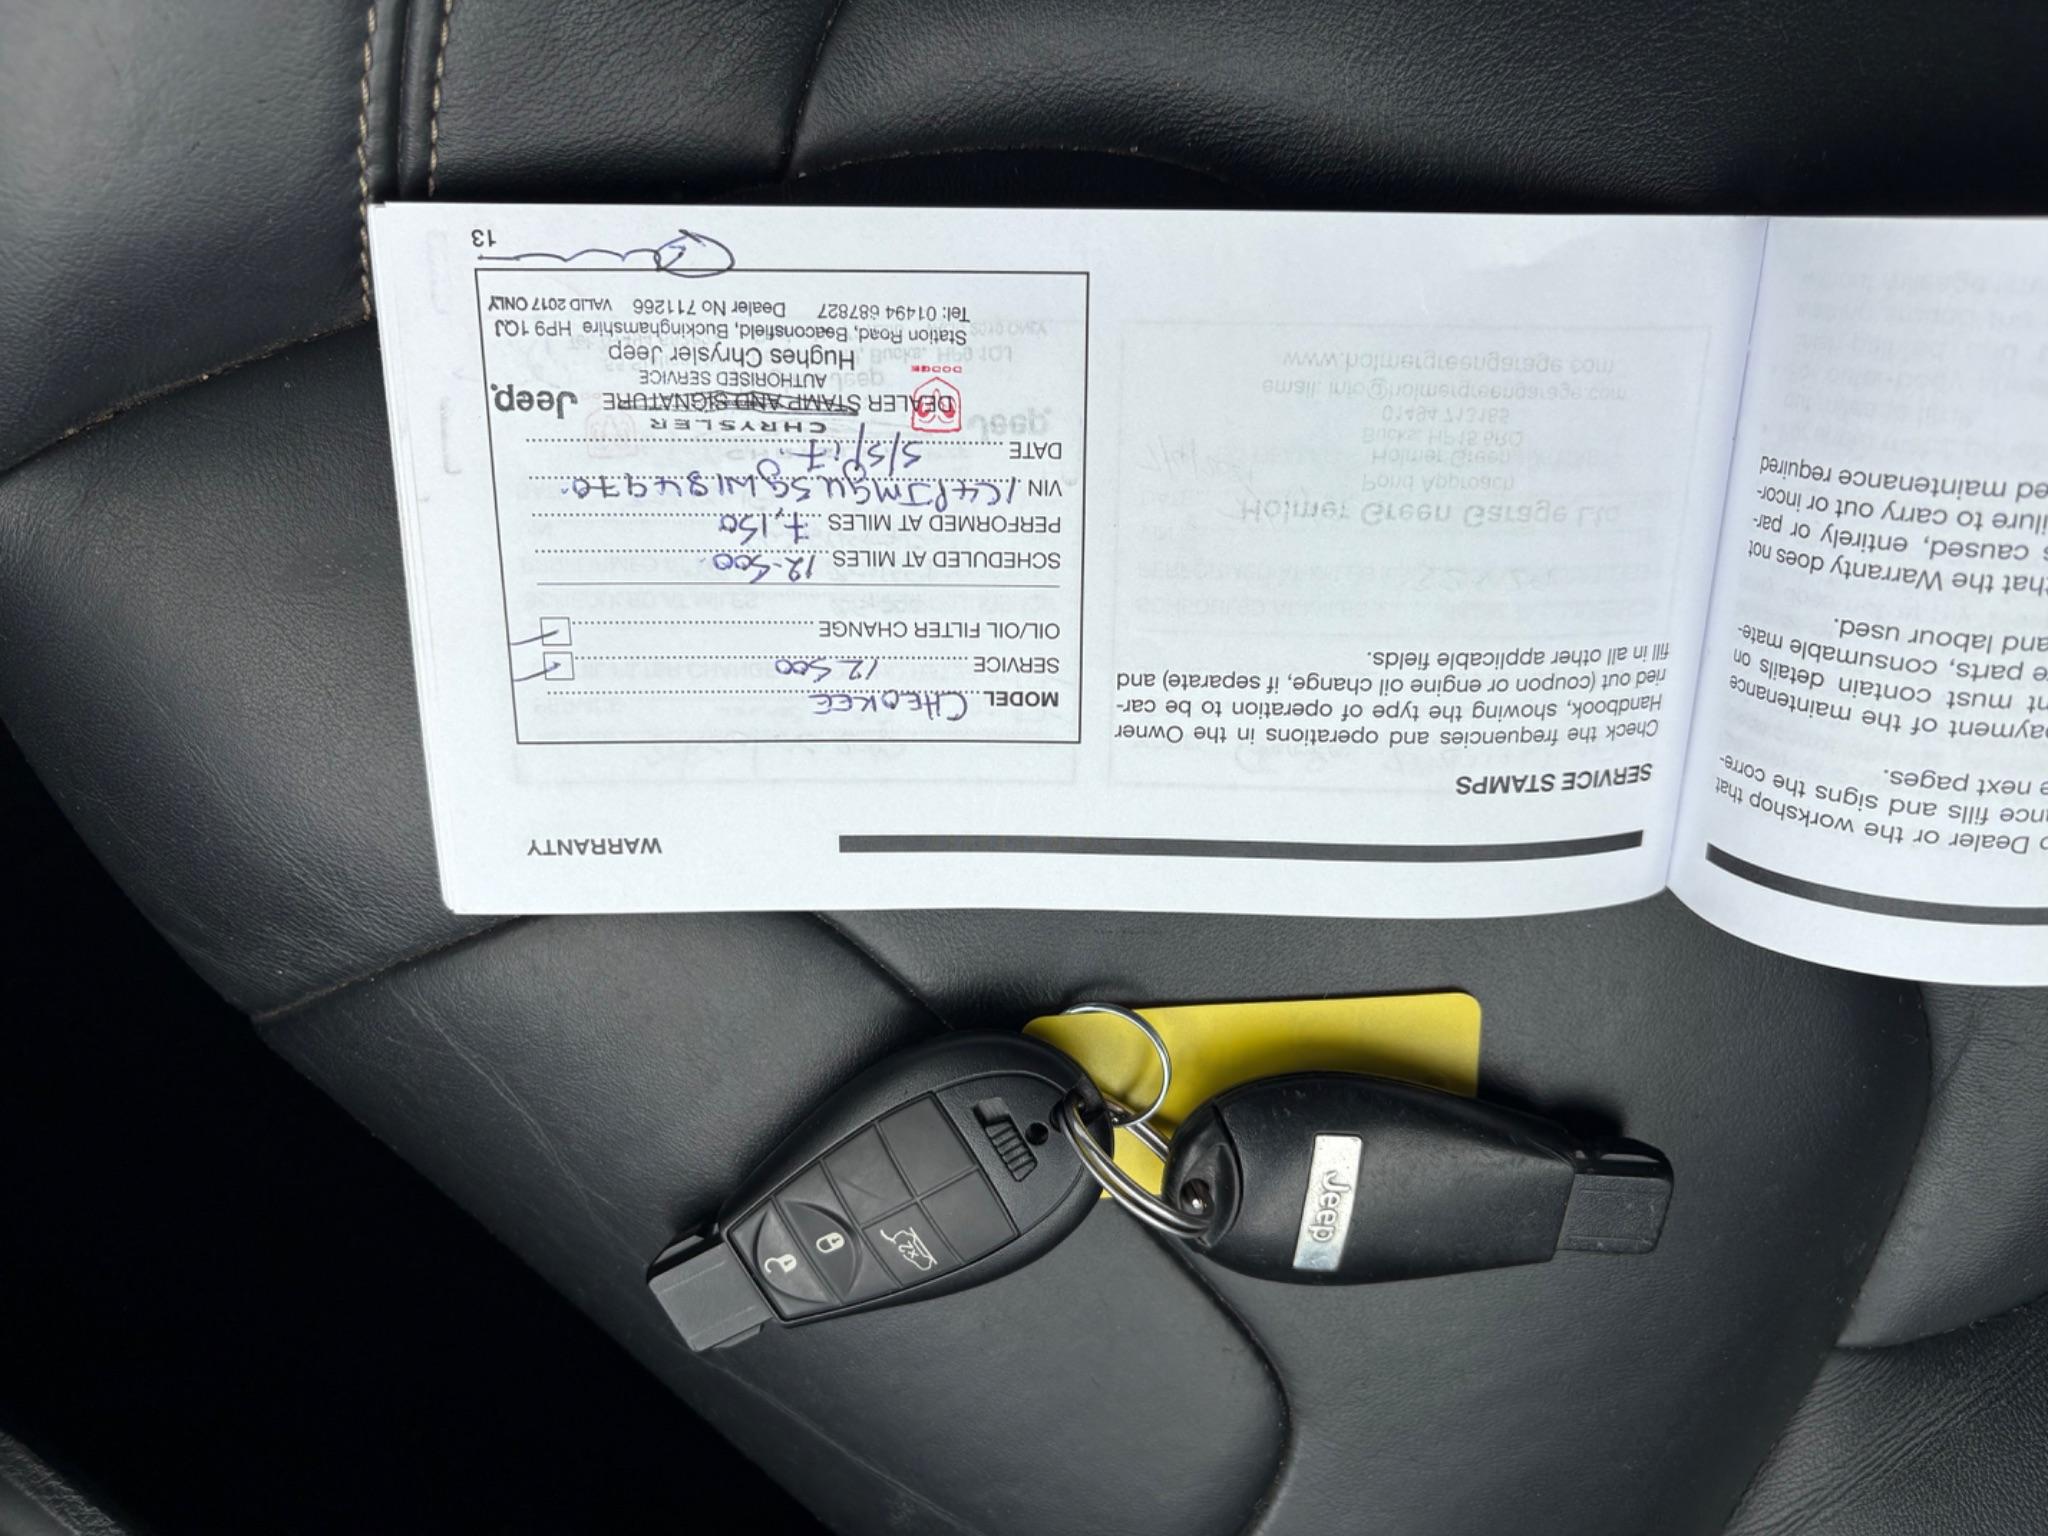 WARRANTY
SERVICE STAMPS
Check the frequencies and operations in the Owner
Handbook, showing the type of operation to be car-
ried out (coupon or engine oil change, if separate) and
fill in all other applicable fields.
MODEL CHEOKEE
SERVICE 12500
OIL/OIL FILTER CHANGE
SCHEDULED AT MILES 12-500
PERFORMED AT MILES 7,150
VIN
DATE 5/5/17
CHRYSLER
DEALER STAMP AND SIGNATURE
DODGE
Jeep
AUTHORISED SERVICE
Hughes Chrysler Jeep
Station Road, Beaconsfield, Buckinghamshire HP9 1QJ
Tel: 01494 687827 Dealer No 711266 VALID 2017 ONLY
13
Dealer or the workshop that
fills and signs the corre-
next pages.
payment of the maintenance
must contain details on
parts, consumable mate-
and labour used.
that the Warranty does not
caused, entirely or par-
to carry out or incor-
maintenance required
Holmer Green Garage Ltd
Pond Approach
Holmer Green
Bucks. HP15 6RQ
01494 713165
email: info@holmergreengarage.com
www.holmergreengarage.com
x2
Jeep